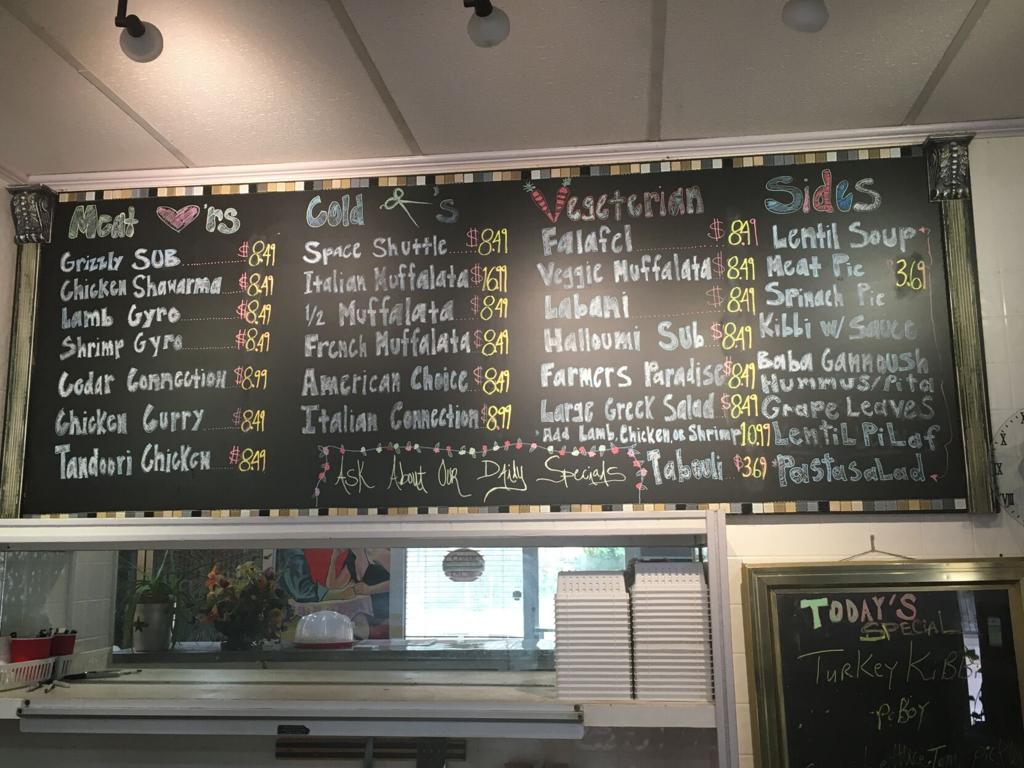 Meat 'rs
Grizzly SUB $8.49
Chicken Shawarma $8.49
Lamb Gyro $8.49
Shrimp Gyro $8.49
Cedar Connection $8.99
Chicken Curry $8.49
Tandoori Chicken $8.49
Cold 's
Space Shuttle $8.49
Italian Muffalata $16.99
1/2 Muffalata $8.49
French Muffalata $8.49
American Choice $8.49
Italian Connection $8.99
Ask About Our Daily Specials
Vegeterian
Falafel $8.49
Veggie Muffalata $8.49
Labani $8.49
Halloumi Sub $8.49
Farmers Paradise $8.49
Large Greek Salad $8.49
Add Lamb, Chicken or Shrimp 10.99
Tabouli $3.69
Sides
Lentil Soup
Meat Pie 3.69
Spinach Pie
Kibbi w/ Sauce
Baba Gannoush
Hummus/Pita
Grape Leaves
Lentil Pilaf
Pasta salad
TODAY'S
SPECIAL
Turkey
PoBoy